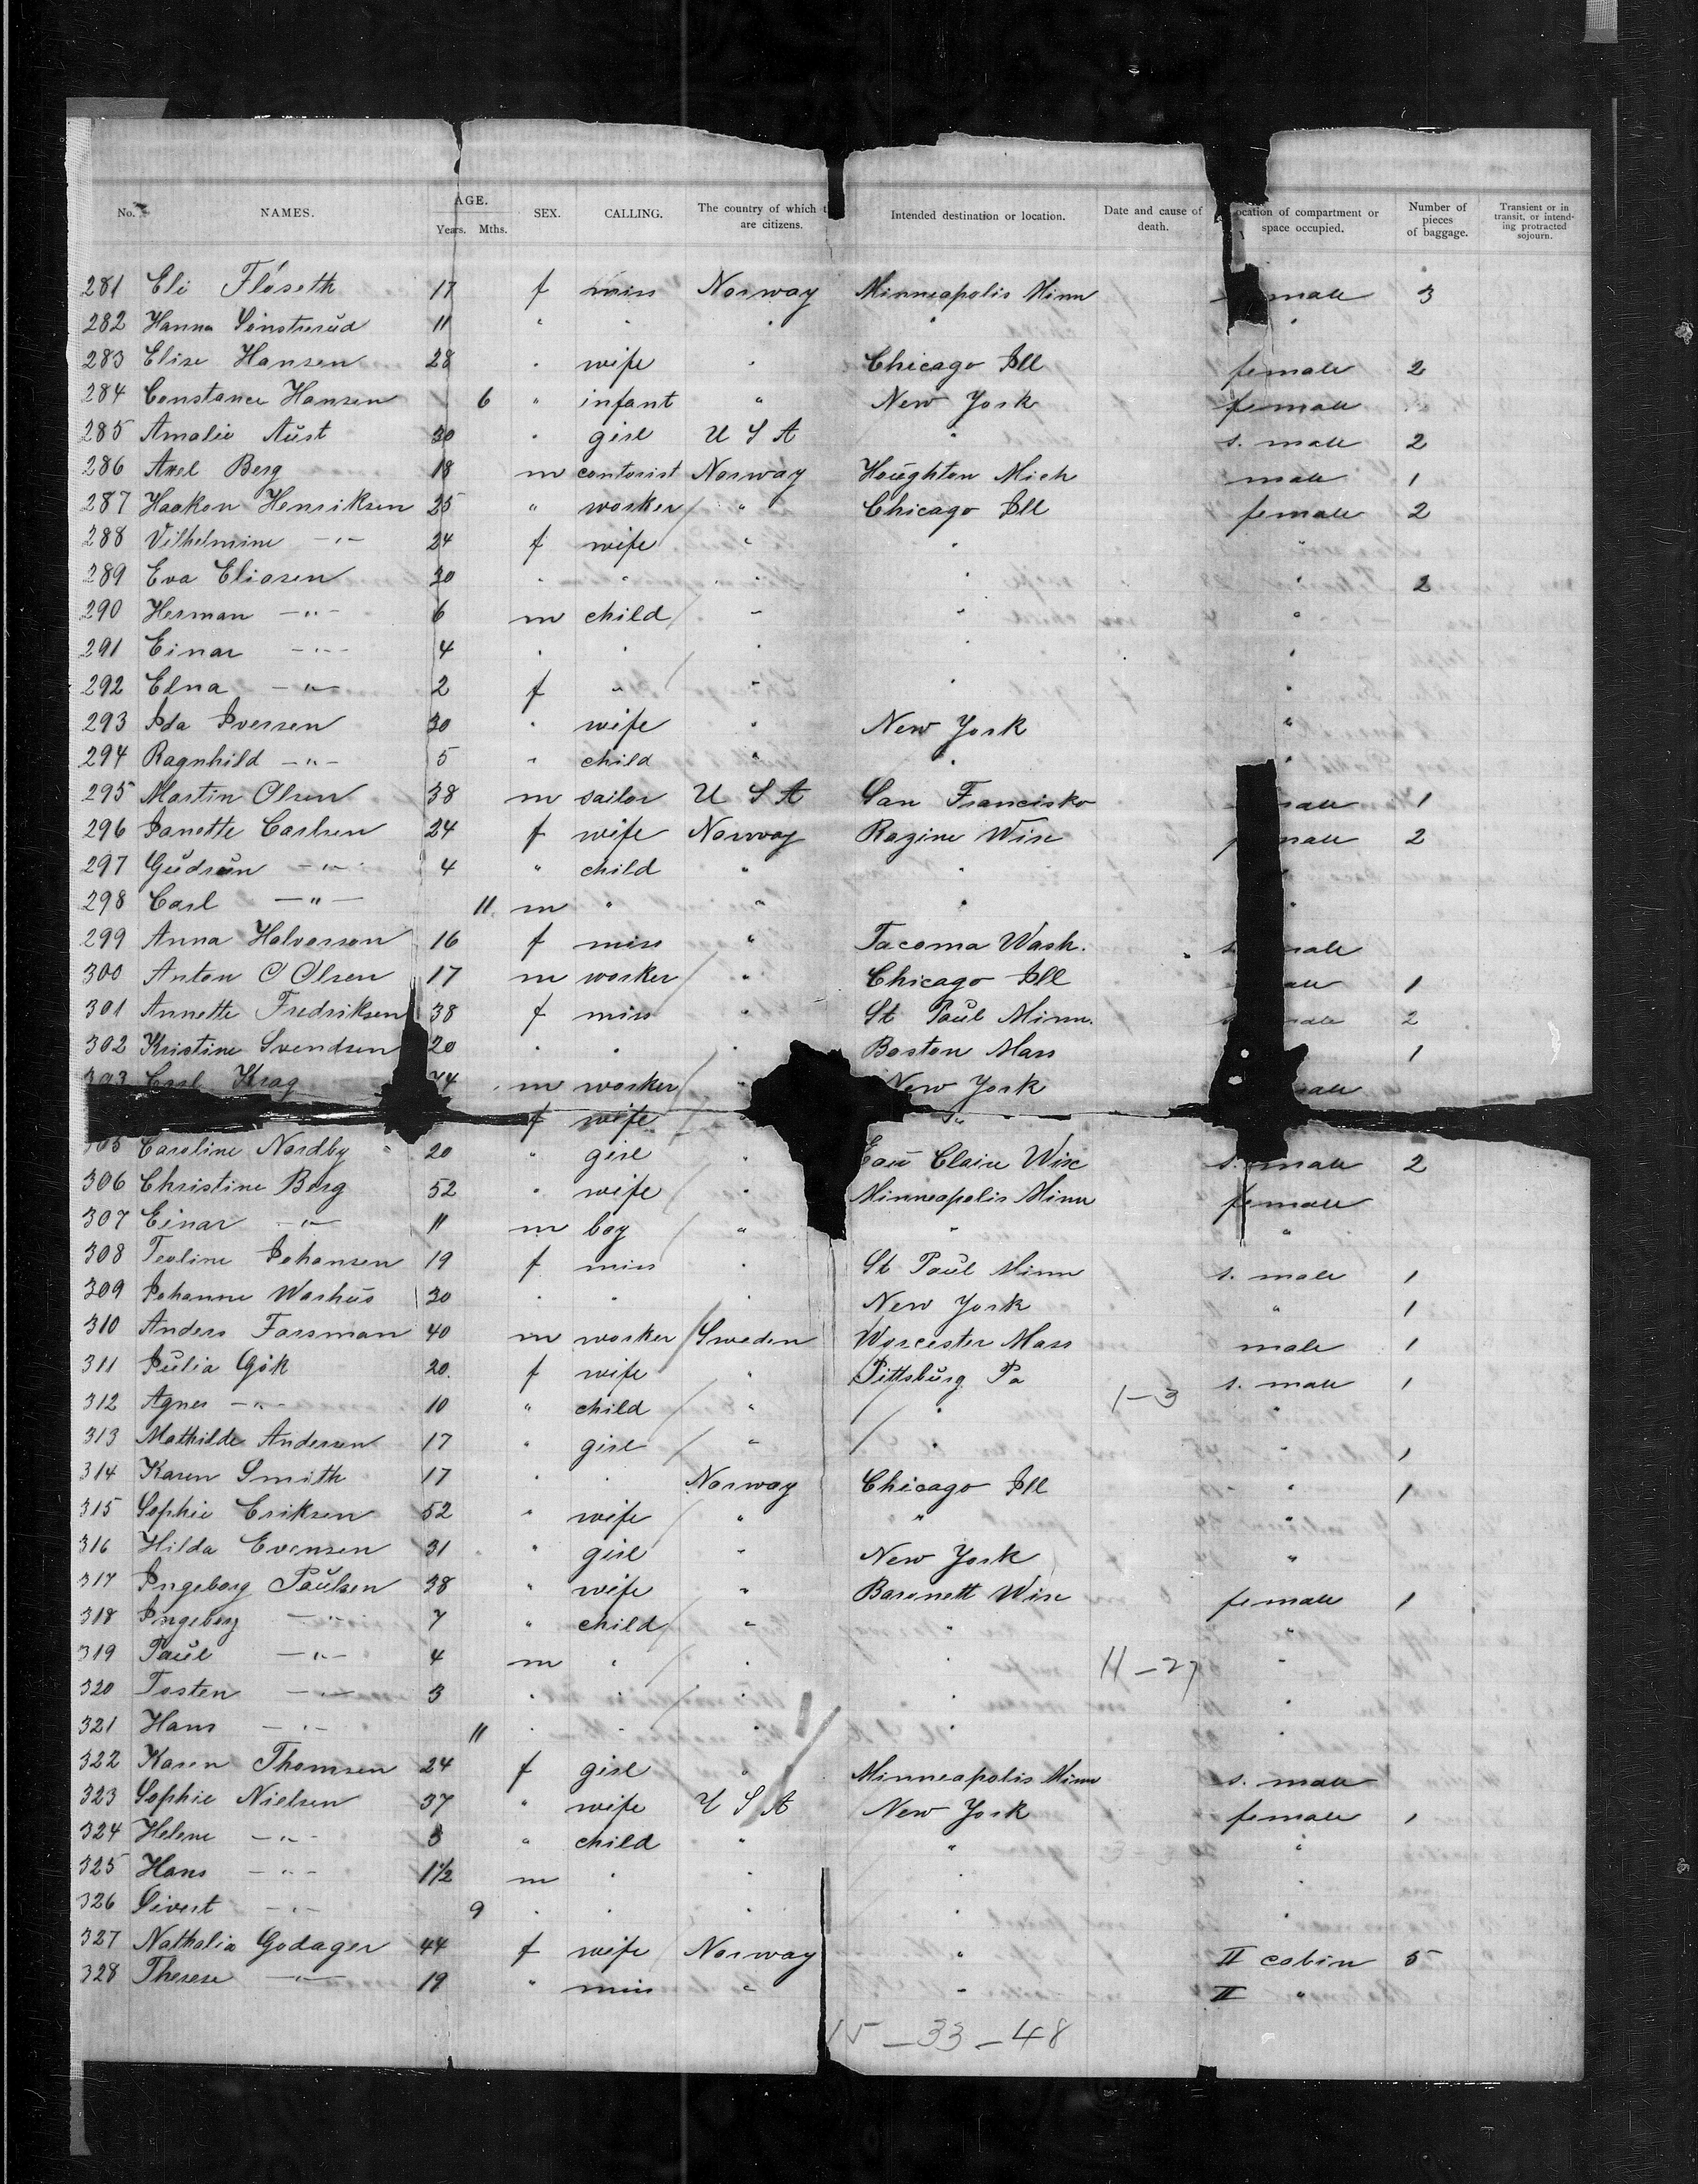 No. NAMES. AGE. Years. Mths. SEX. CALLING. The country of which are citizens. Intended destination or location. Date and cause of death. ocation of compartment or space occupied. Number of pieces of baggage. Transient or in transit, or intending protracted sojourn.
281 Eli Flöseth 17 f miss Norway Minneapolis Minn male 3
282 Hanna 11 " " " " "
283 Elise Hansen 28 " wife " Chicago Ill female 2
284 Constance Hansen 6 " infant " New York female
285 Amalie Aŭst 30 " girl U S A " s. male 2
286 Axel Berg 18 m contorist Norway Hoŭghton Mich male 1
287 Haakon Henriksen 25 " worker " Chicago Ill female 2
288 Vilhelmine -"- 24 f wife " " "
289 Eva Eliasen 30 " " " " " 2
290 Herman -"- 6 m child " " "
291 Einar -"- 4 " " " " "
292 Edna -"- 2 f " " " "
293 Ida Iversen 30 " wife " New York "
294 Ragnhild -"- 5 " child " " "
295 Martin Olsen 38 m sailor U S A San Francisko male 1
296 Janette Carlsen 24 f wife Norway Razine Wisc male 2
297 Gŭdrŭn -"- 4 " child " "
298 Carl -"- 11 m " " " "
299 Anna Halvorsen 16 f miss " Tacoma Wash. s. male
300 Anton O Olsen 17 m worker " Chicago Ill ale 1
301 Annette Fredriksen 38 f miss " St Paŭl Minn. s. male 2
302 Kristine Svendsen 20 " " " Boston Mass 1
303 Carl Krag 74 m worker " New York male
f wife "
305 Caroline Nordby 20 " girl " Eaŭ Claire Wisc s. male 2
306 Christine Berg 52 " wife " Minneapolis Minn female
307 Einar -"- 11 m boy " " "
308 Teoline Johansen 19 f miss " St Paŭl Minn s. male 1
309 Johanne Warhŭs 30 " " " New York " 1
310 Anders Forsman 40 m worker Sweden Worcester Mass male 1
311 Jŭlia Gök 20 f wife " Pittsbŭrg Pa s. male 1
312 Agnes -"- 10 " child " " 1-3 "
313 Mathilde Andersen 17 " girl " " " 1
314 Karen Smith 17 " " Norway Chicago Ill " 1
315 Sophie Eriksen 52 " wife " " "
316 Hilda Evensen 31 " girl " New York "
317 Ingeborg Paŭlsen 38 " wife " Baronett Wisc female 1
318 Ingeborg -"- 7 " child " " "
319 Paŭl -"- 4 m " " " 11-27 "
320 Tosten -"- 3 " " " " "
321 Hans -"- 11 " " " " "
322 Karen Thomsen 24 f girl " Minneapolis Minn s. male
323 Sophie Nielsen 37 " wife U S A New York female 1
324 Helene -"- 3 " child " " "
325 Hans -"- 1½ m " " " "
326 Sivert -"- 9 " " " " "
327 Nathalia Godager 44 f wife Norway " II cabin 5
328 Therese -"- 19 " miss " " II "
15-33-48